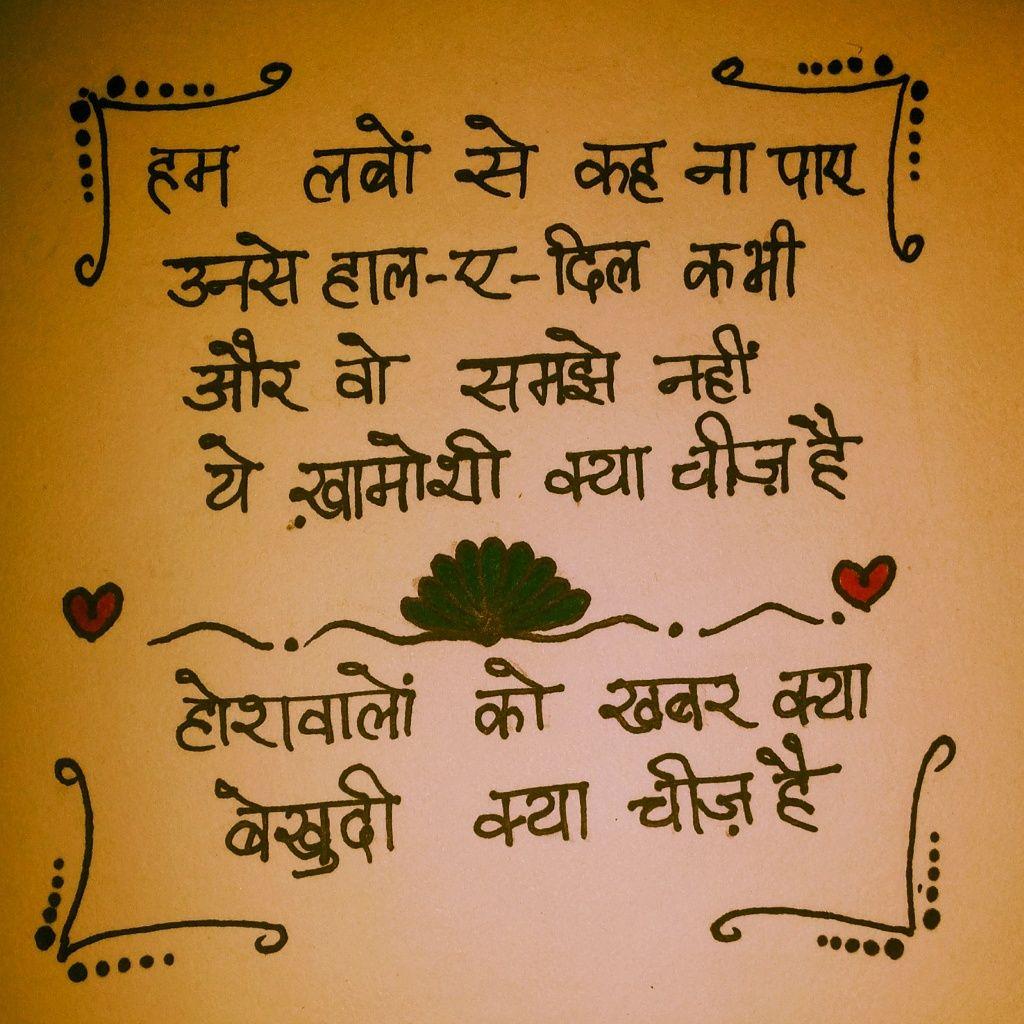 हम लबों से कह ना पाए
उनसे हाल-ए-दिल कभी
और वो समझे नहीं
ये ख़ामोशी क्या चीज़ है
होशवालों को खबर क्या
बेखुदी क्या चीज़ है